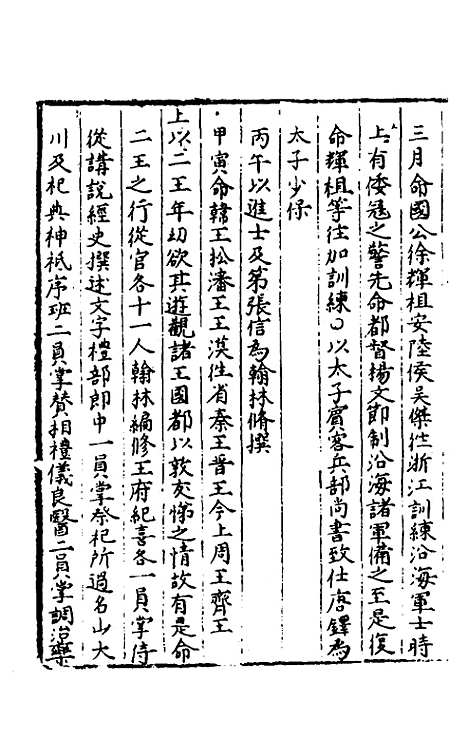 三月命國公徐輝祖安陸侯吳傑徃浙江訓練沿海軍士時
上有倭冦之警先命都督楊文節制沿海諸軍備之至是復
命輝祖等往加訓練○以太子賓客兵部尚書致仕唐鐸為
太子少保
丙午以進士及第張信為翰林脩撰
甲寅命韓王松瀋王王漠徃省秦王晋王今上周王齊王
上以二王年幼欲其遊觀諸王國都以敦友悌之情故有是命
二王之行從官各十一人翰林編修王府紀善各一員掌侍
從講說經史撰述文字禮部郎中一員掌祭祀所過名山大
川及祀典神祗序班二員掌贊相禮儀良醫二員掌調治藥